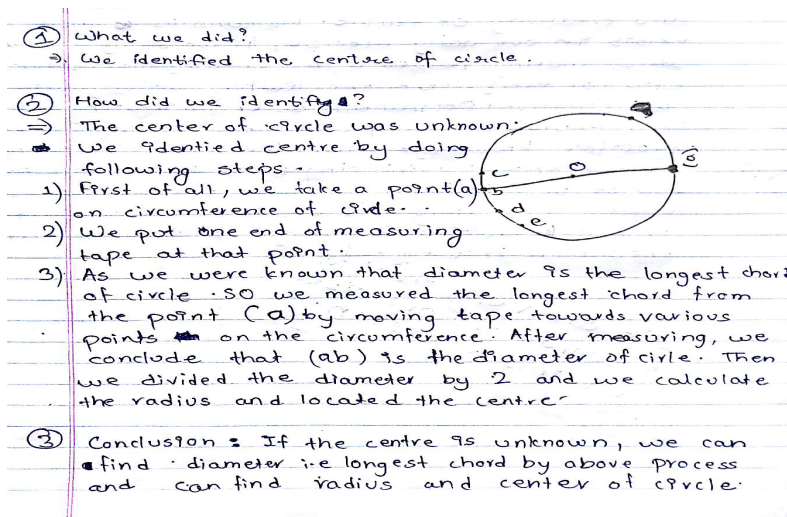 ① What we did?
⇒ we identified the centre of circle.
② How did we identify?
⇒ The center of circle was unknown.
we identied centre by doing
following steps.
1) First of all, we take a point (a)
on circumference of circle.
2) We put one end of measuring
tape at that point.
3) As we were known that diameter is the longest chord
of circle. SO we measured the longest chord from
the point (a) by moving tape towards various
points on the circumference. After measuring, we
conclude that (ab) is the diameter of cirle. Then
we divided the diameter by 2 and we calculate
the radius and located the centre
③ Conclusion : If the centre is unknown, we can
find diameter i.e longest chord by above process
and can find radius and center of circle.
c
b
d
e
o